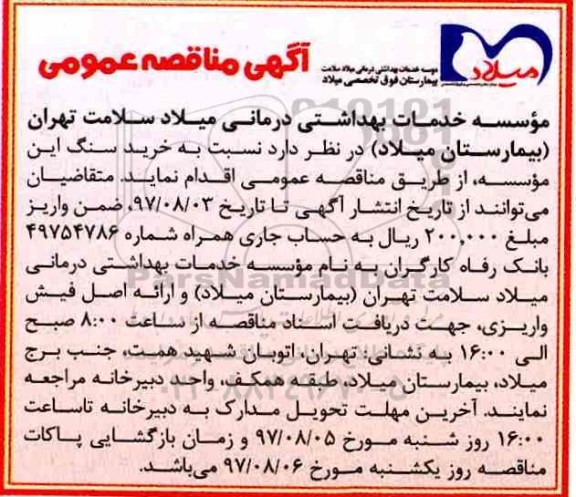 میلاد
موسسه خدمات بهداشتی درمانی میلاد سلامت
بیمارستان فوق تخصصی میلاد
آگهی مناقصه عمومی
مؤسسه خدمات بهداشتی درمانی میلاد سلامت تهران
(بیمارستان میلاد) در نظر دارد نسبت به خرید سنگ این
مؤسسه، از طریق مناقصه عمومی اقدام نماید. متقاضیان
می‌توانند از تاریخ انتشار آگهی تا تاریخ ۹۷/۰۸/۰۳، ضمن واریز
مبلغ ۲۰۰,۰۰۰ ریال به حساب جاری همراه شماره ۴۹۷۵۴۷۸۶
بانک رفاه کارگران به نام مؤسسه خدمات بهداشتی درمانی
میلاد سلامت تهران (بیمارستان میلاد) و ارائه اصل فیش
واریزی، جهت دریافت اسناد مناقصه از ساعت ۸:۰۰ صبح
الی ۱۶:۰۰ به نشانی: تهران، اتوبان شهید همت، جنب برج
میلاد، بیمارستان میلاد، طبقه همکف، واحد دبیرخانه مراجعه
نمایند. آخرین مهلت تحویل مدارک به دبیرخانه تاساعت
۱۶:۰۰ روز شنبه مورخ ۹۷/۰۸/۰۵ و زمان بازگشایی پاکات
مناقصه روز یکشنبه مورخ ۹۷/۰۸/۰۶ می‌باشد.
ParsNamadData